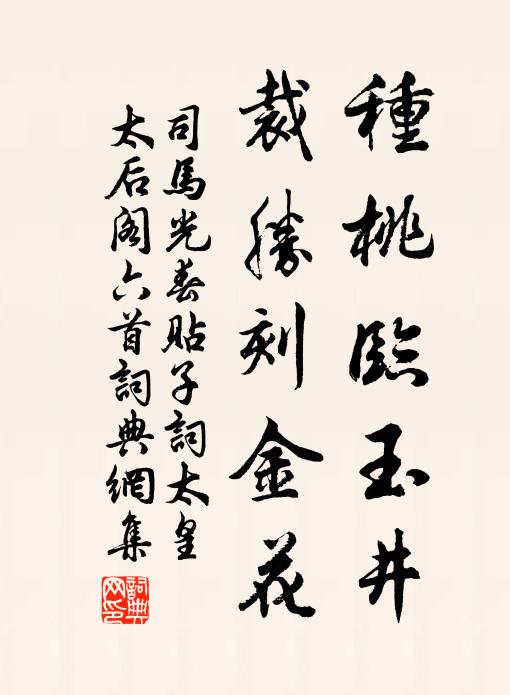 種桃臨玉井
裁勝刻金花
司馬光春貼子詞太皇
太后閣六首詞典網集